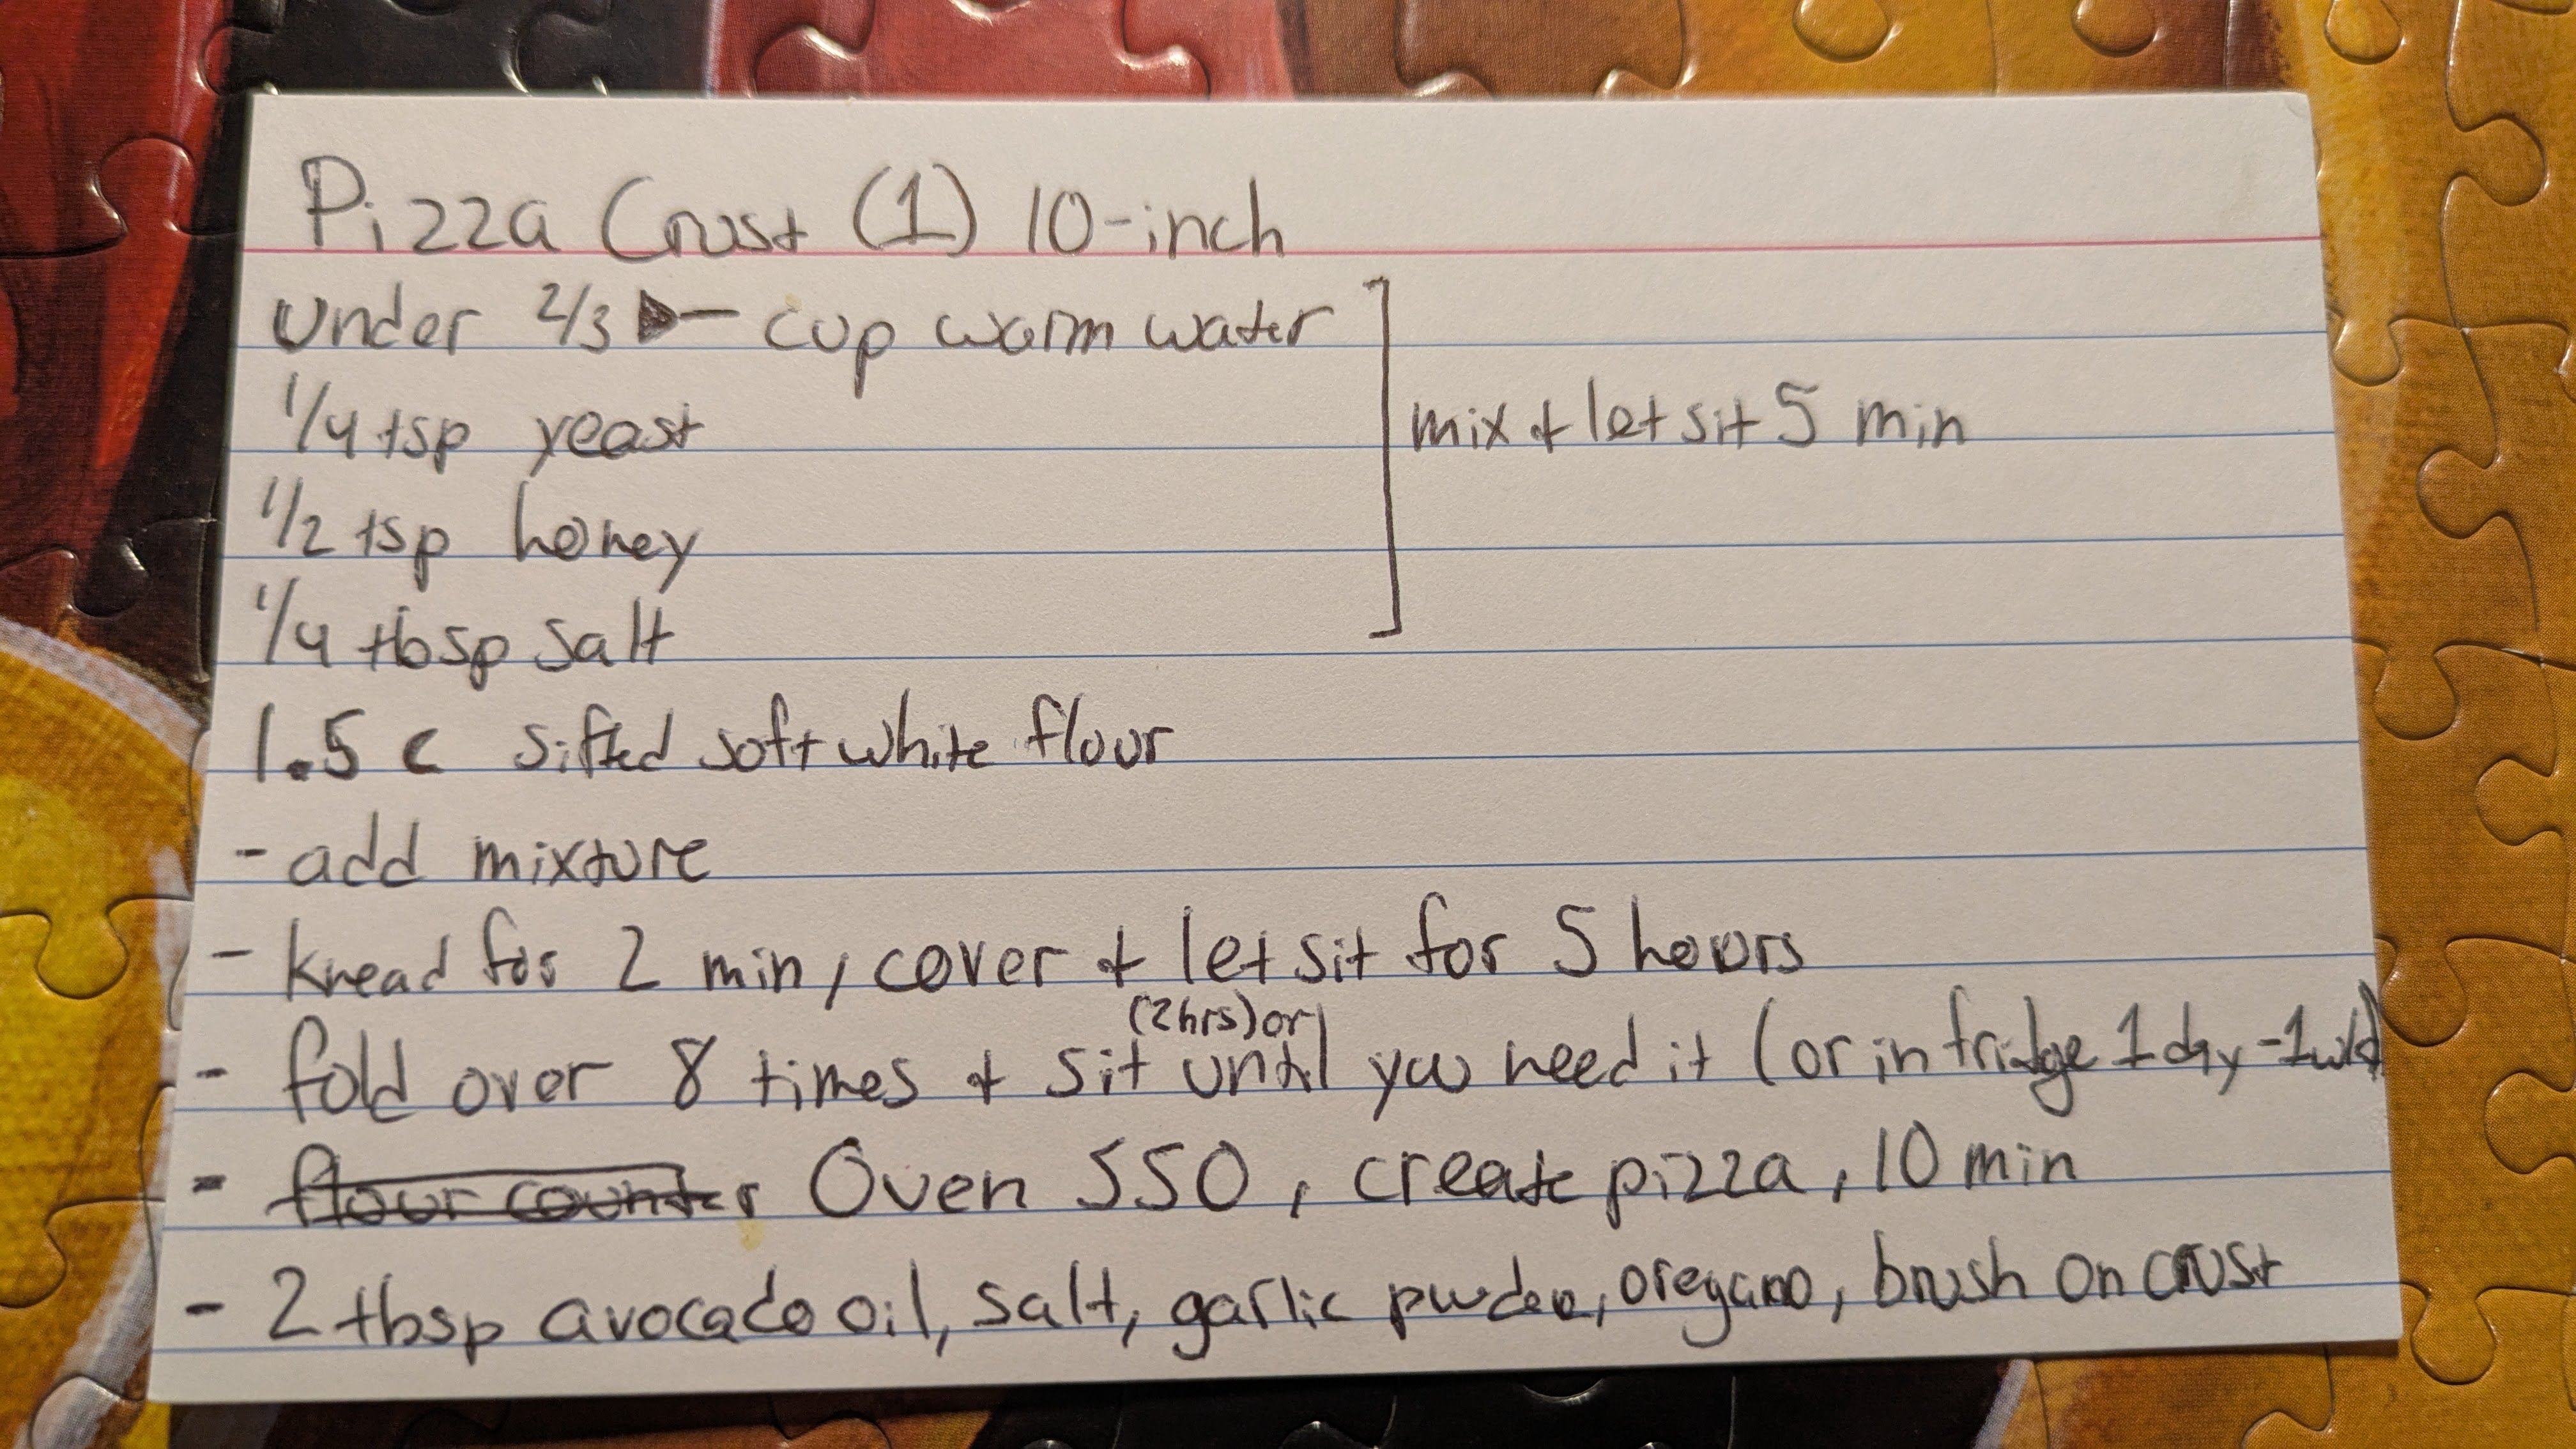 Pizza Crust (1) 10-inch
Under 2/3 cup warm water
1/4 tsp yeast
1/2 tsp honey
mix + let sit 5 min
1/4 tbsp salt
1.5 c sifted soft white flour
- add mixture
- knead for 2 min, cover + let sit for 5 hours
(2hrs) or
- fold over 8 times + sit until you need it (or in fridge 1 day - 1 wk)
- flour counter Oven 550, create pizza, 10 min
- 2 tbsp avocado oil, salt, garlic pwder, oregano, brush on crust